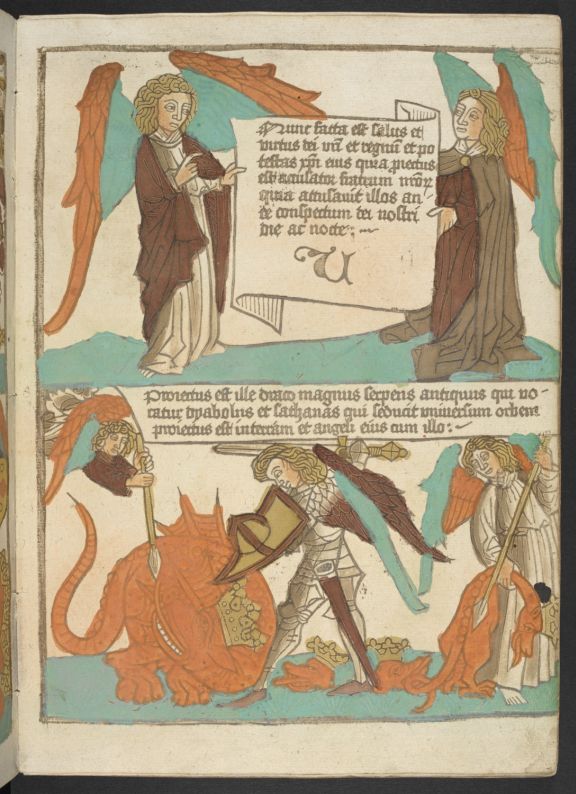 Nunc facta est salus et
virtus dei nri et regnū et po
testas xpi eius quia proiectus
est accusator fratrum nror
quia accusavit illos an
te conspectum dei nostri
die ac nocte:
U
Proiectus est ille draco magnus serpens antiquus qui vo
catur dyabolus et sathanas qui seducit universum orbem
proiectus est in terram et angeli eius cum illo: